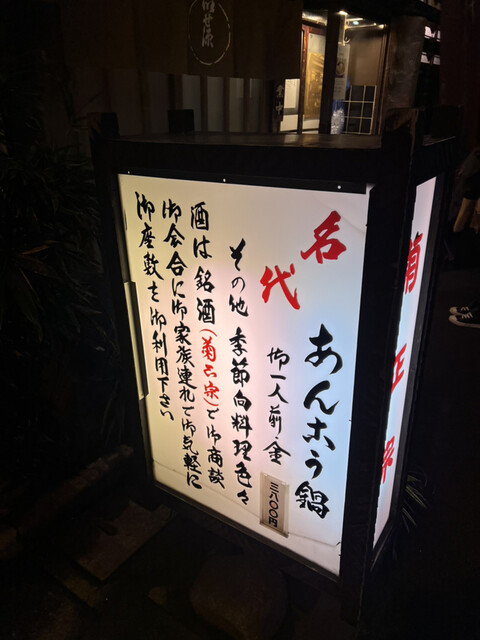 名代
あんホう鍋
御一人前・金
三八〇〇円
その他 季節向料理色々
酒は銘酒(菊正宗)で御商談
御会合に御家族連れで御気軽に
御座敷を御利用下さい
菊正宗